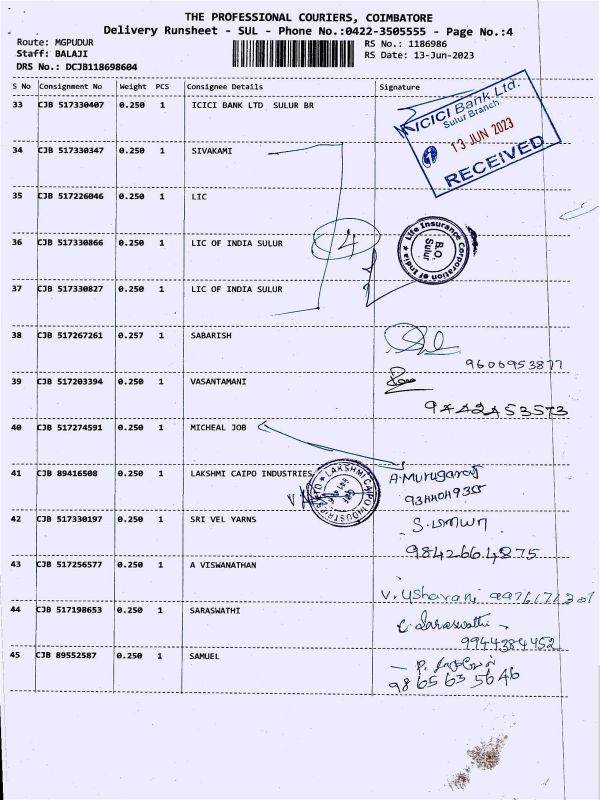 THE PROFESSIONAL COURIERS, COIMBATORE
Delivery Runsheet - SUL - Phone No.:0422-3505555 - Page No.:4
Route: MGPUDUR
RS No.: 1186986
Staff: BALAJI
RS Date: 13-Jun-2023
DRS No.: DCJB118698604
S No Consignment No Weight PCS Consignee Details Signature
33 CJB 517330407 0.250 1 ICICI BANK LTD SULUR BR
ICICI Bank Ltd.
Sulur Branch
13 JUN 2023
RECEIVED
34 CJB 517330347 0.250 1 SIVAKAMI
35 CJB 517226046 0.250 1 LIC
36 CJB 517330866 0.250 1 LIC OF INDIA SULUR
4
Life Insurance Corporation of India
B.O.
Sulur
37 CJB 517330827 0.250 1 LIC OF INDIA SULUR
38 CJB 517267261 0.257 1 SABARISH
9600953877
39 CJB 517203394 0.250 1 VASANTAMANI
9442453573
40 CJB 517274591 0.250 1 MICHEAL JOB
41 CJB 89416508 0.250 1 LAKSHMI CAIPO INDUSTRIES
LAKSHMI CAIPO INDUSTRIES
A.Murugaraj
9344049355
42 CJB 517330197 0.250 1 SRI VEL YARNS
9842664875
43 CJB 517256577 0.250 1 A VISWANATHAN
V. Usharani
44 CJB 517198653 0.250 1 SARASWATHI
C. Saraswathi
9944384452
45 CJB 89552587 0.250 1 SAMUEL
9865635646